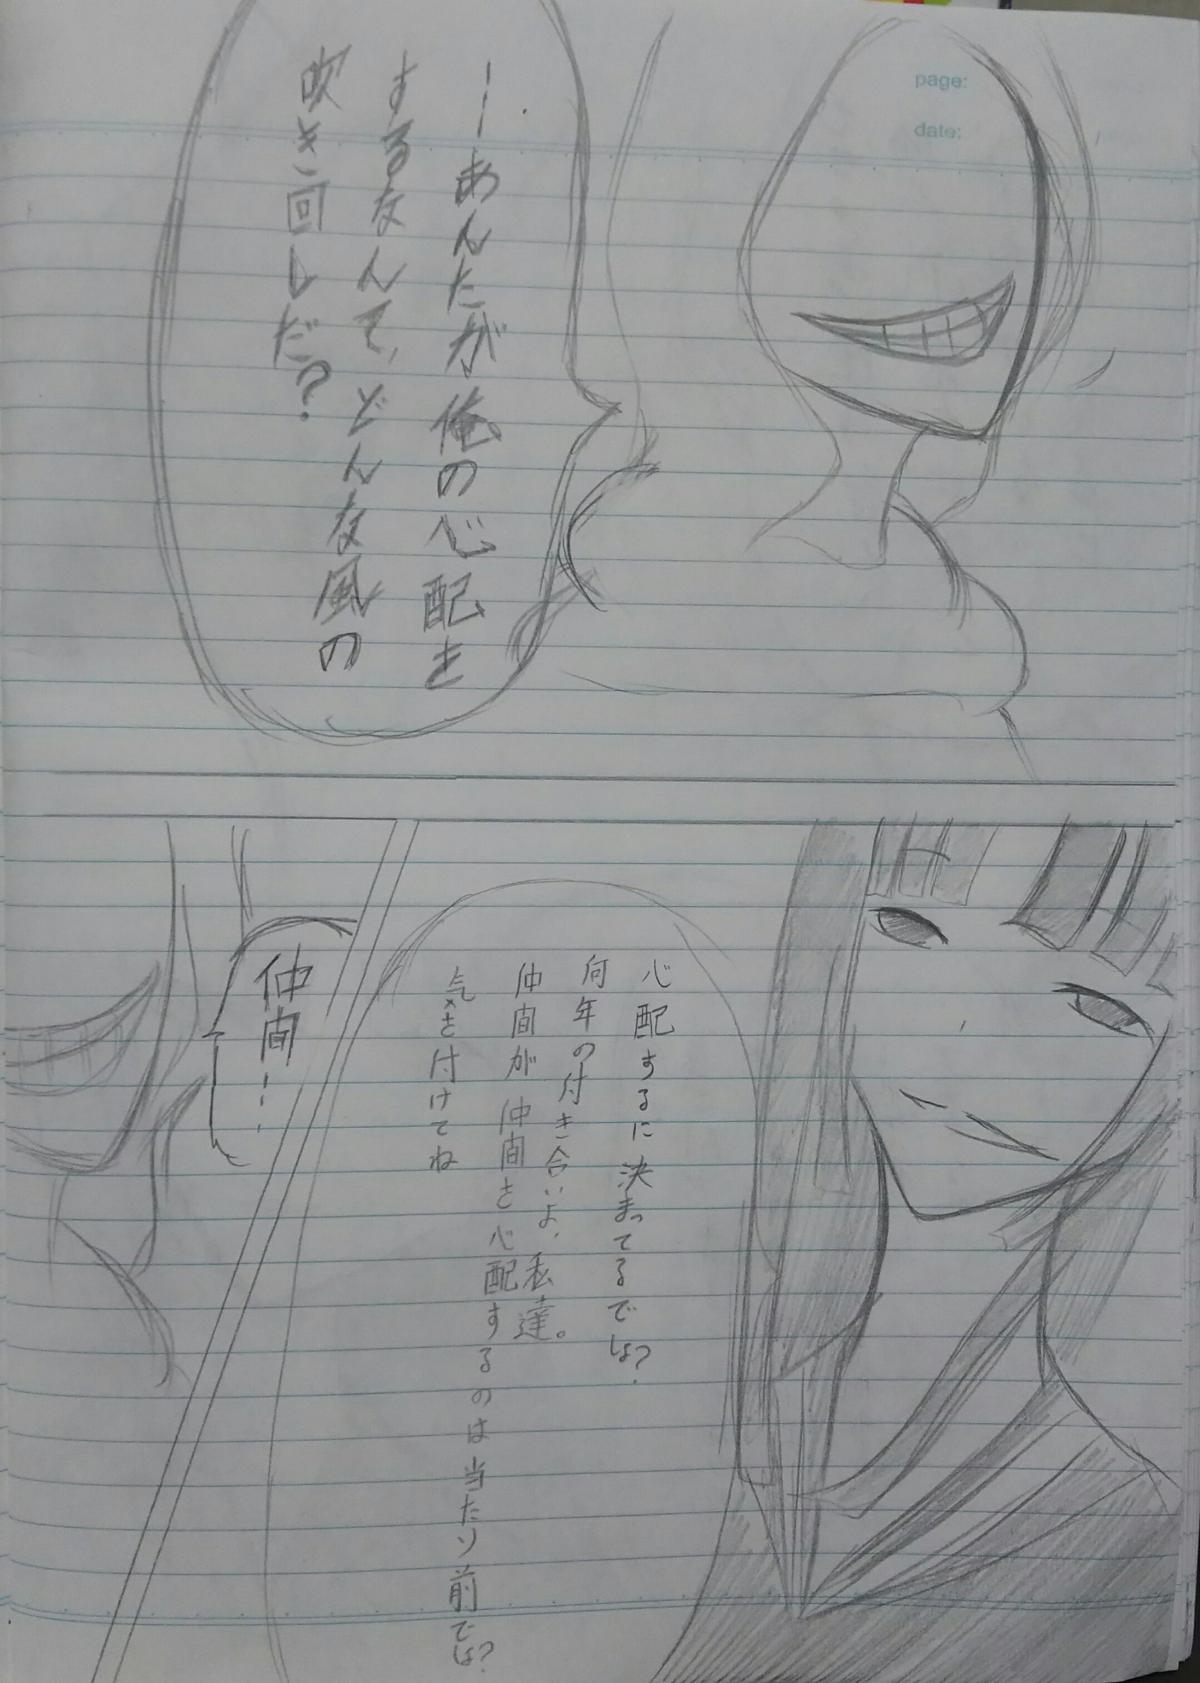 page:
date:
――あんたが俺の心配を
するなんて、どんな風の
吹き回しだ?
心配するに決まってるでしょ?
何年の付き合いよ、私達。
仲間が仲間を心配するのは当たり前でしょ?
気を付けてね
仲間……